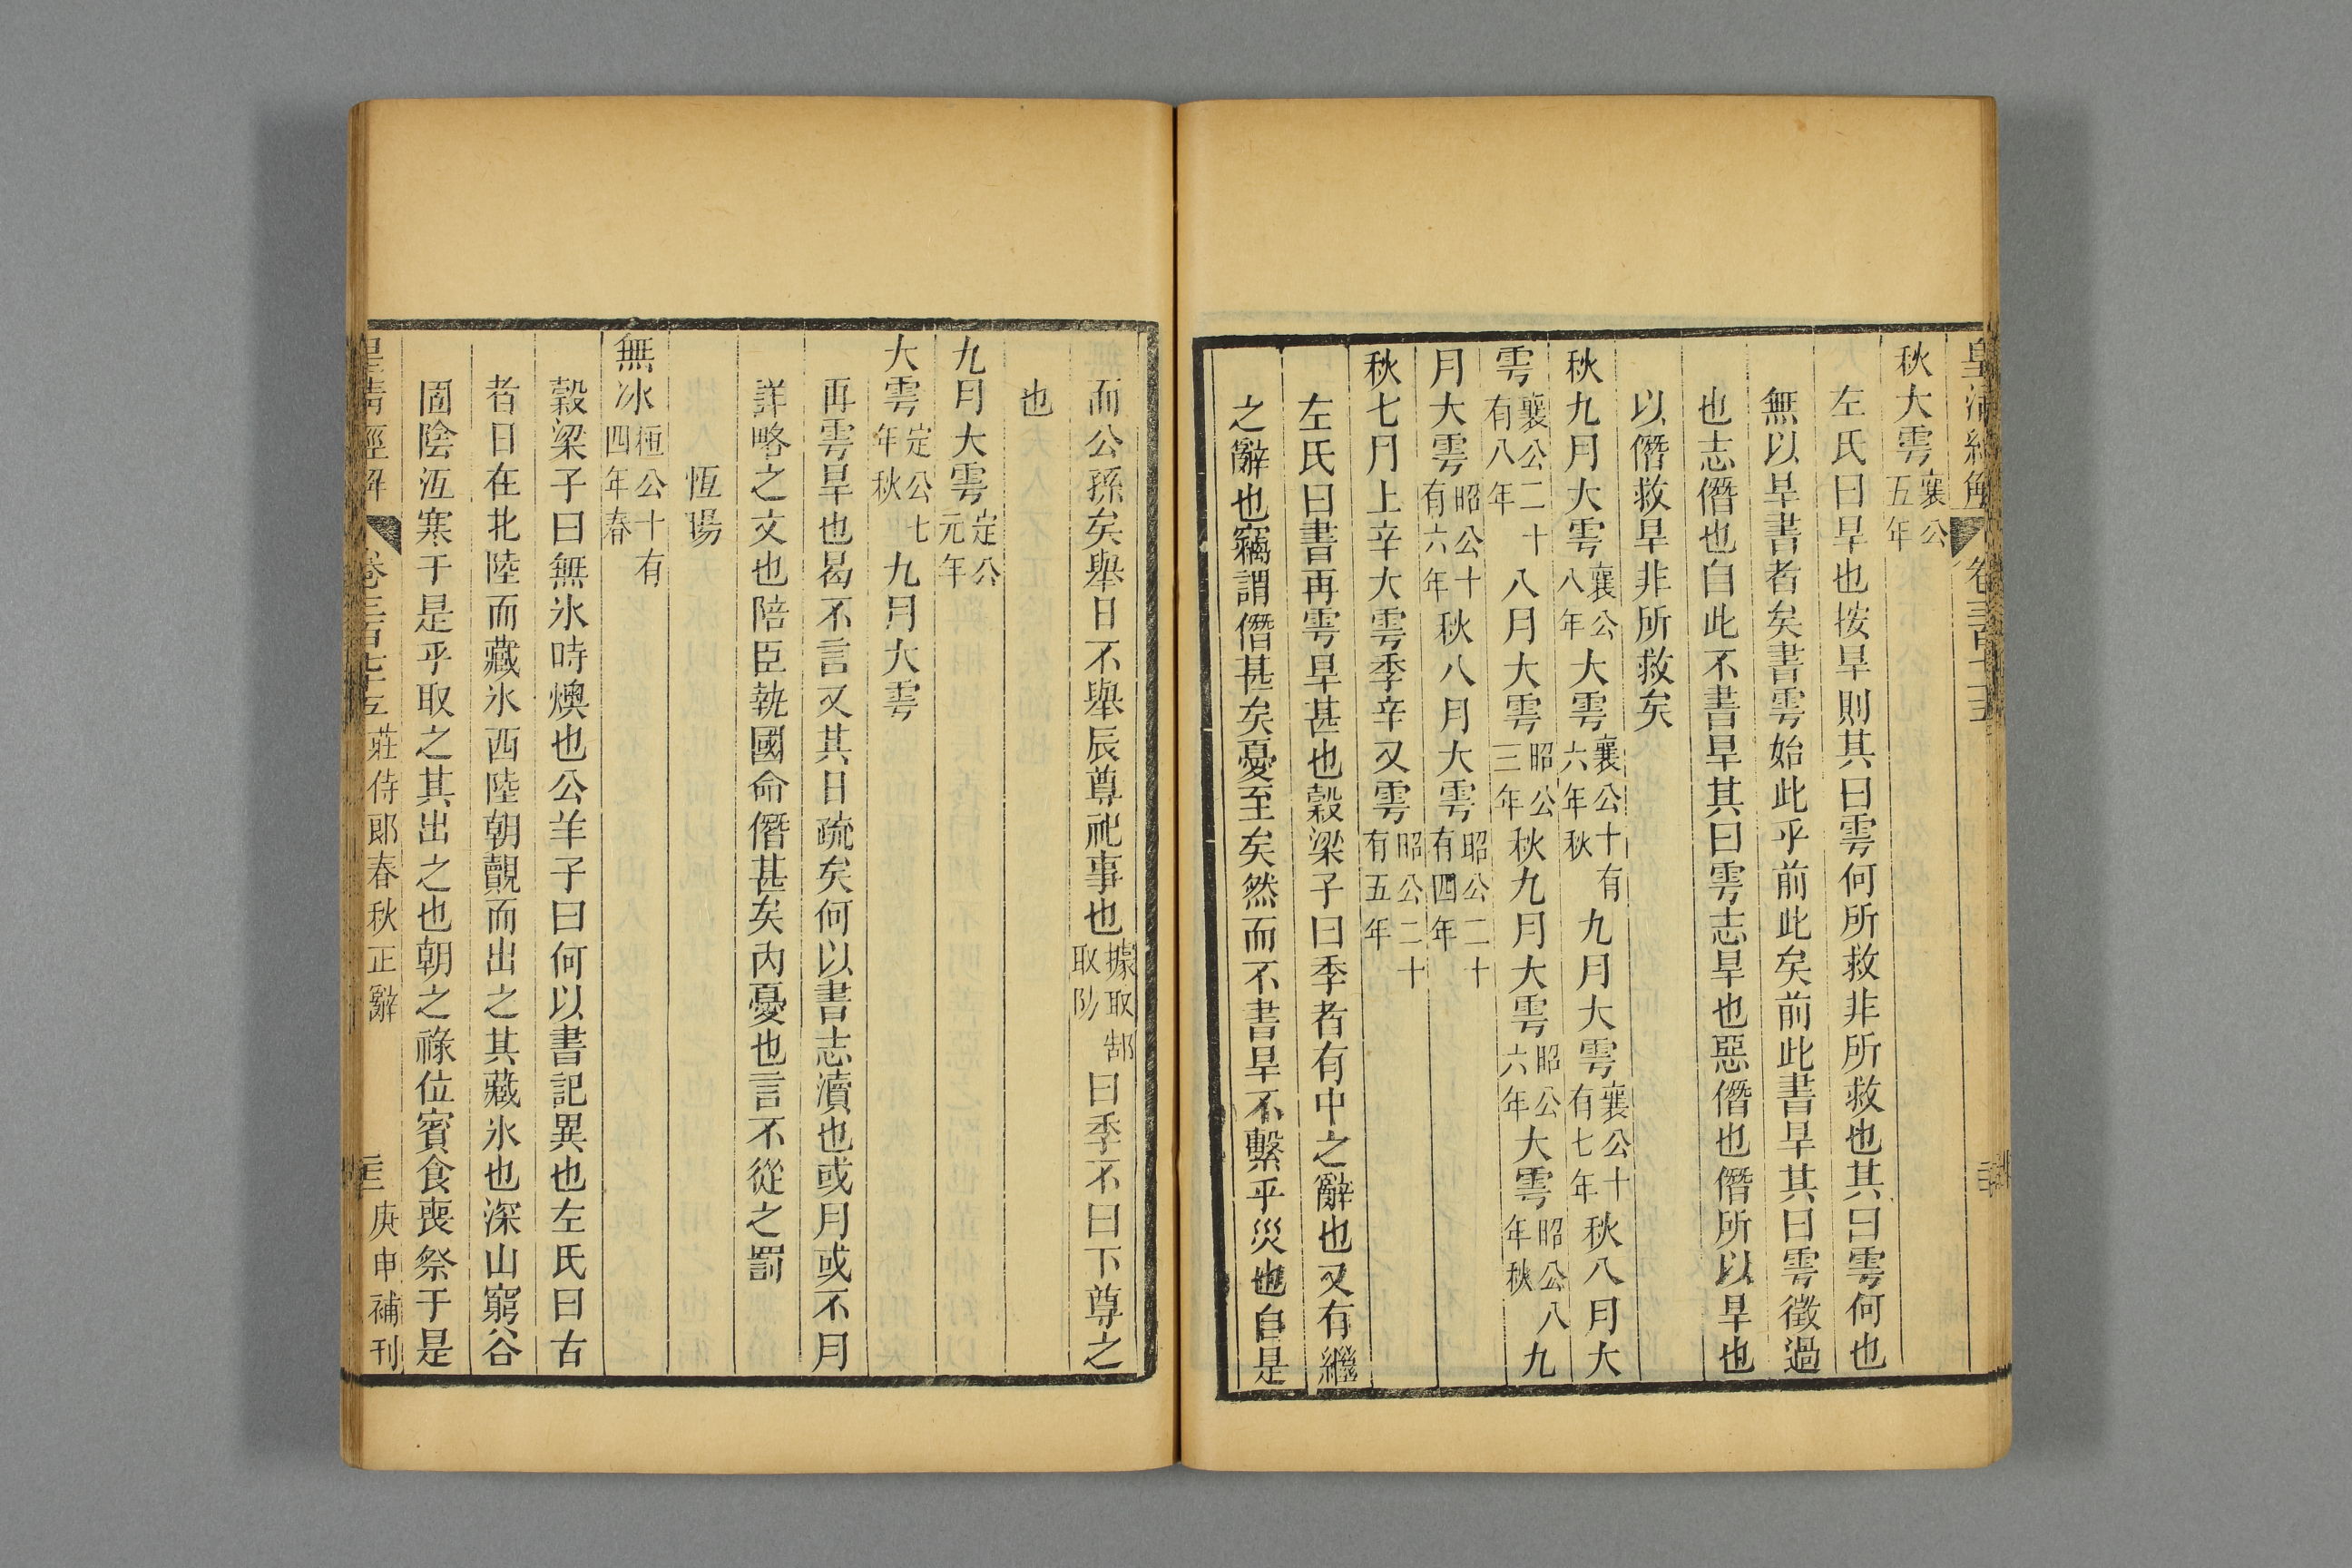 皇清經解 卷三百七十五
秋大雩襄公五年
左氏曰旱也按旱則其曰雩何所救非所救也其曰雩何也
無以旱書者矣書雩始此乎前此矣前此書旱其曰雩徵過
也志僭也自此不書旱其曰雩志旱也惡僭也僭所以旱也
以僭救旱非所救矣
秋九月大雩襄公八年大雩襄公十有六年秋九月大雩襄公十有七年秋八月大
雩襄公二十有八年八月大雩昭公三年秋九月大雩昭公六年大雩昭公八年秋九
月大雩昭公十有六年秋八月大雩昭公二十有四年
秋七月上辛大雩季辛又雩昭公二十有五年
左氏曰書再雩旱甚也穀梁子曰季者有中之辭也又有繼
之辭也竊謂僭甚矣憂至矣然而不書旱不繫乎災也自是
而公孫矣舉日不舉辰尊祀事也據取郜取防曰季不曰下尊之
也
九月大雩定公元年
大雩定公七年秋九月大雩
再雩旱也曷不言又其日疏矣何以書志瀆也或月或不月
詳略之文也陪臣執國命僭甚矣內憂也言不從之罰
恆暘
無冰桓公十有四年春
穀梁子曰無氷時燠也公羊子曰何以書記異也左氏曰古
者日在北陸而藏氷西陸朝覿而出之其藏氷也深山窮谷
固陰沍寒于是乎取之其出之也朝之祿位賓食喪祭于是
皇清經解 卷三百七十五 莊侍郎春秋正辭 庚申補刊